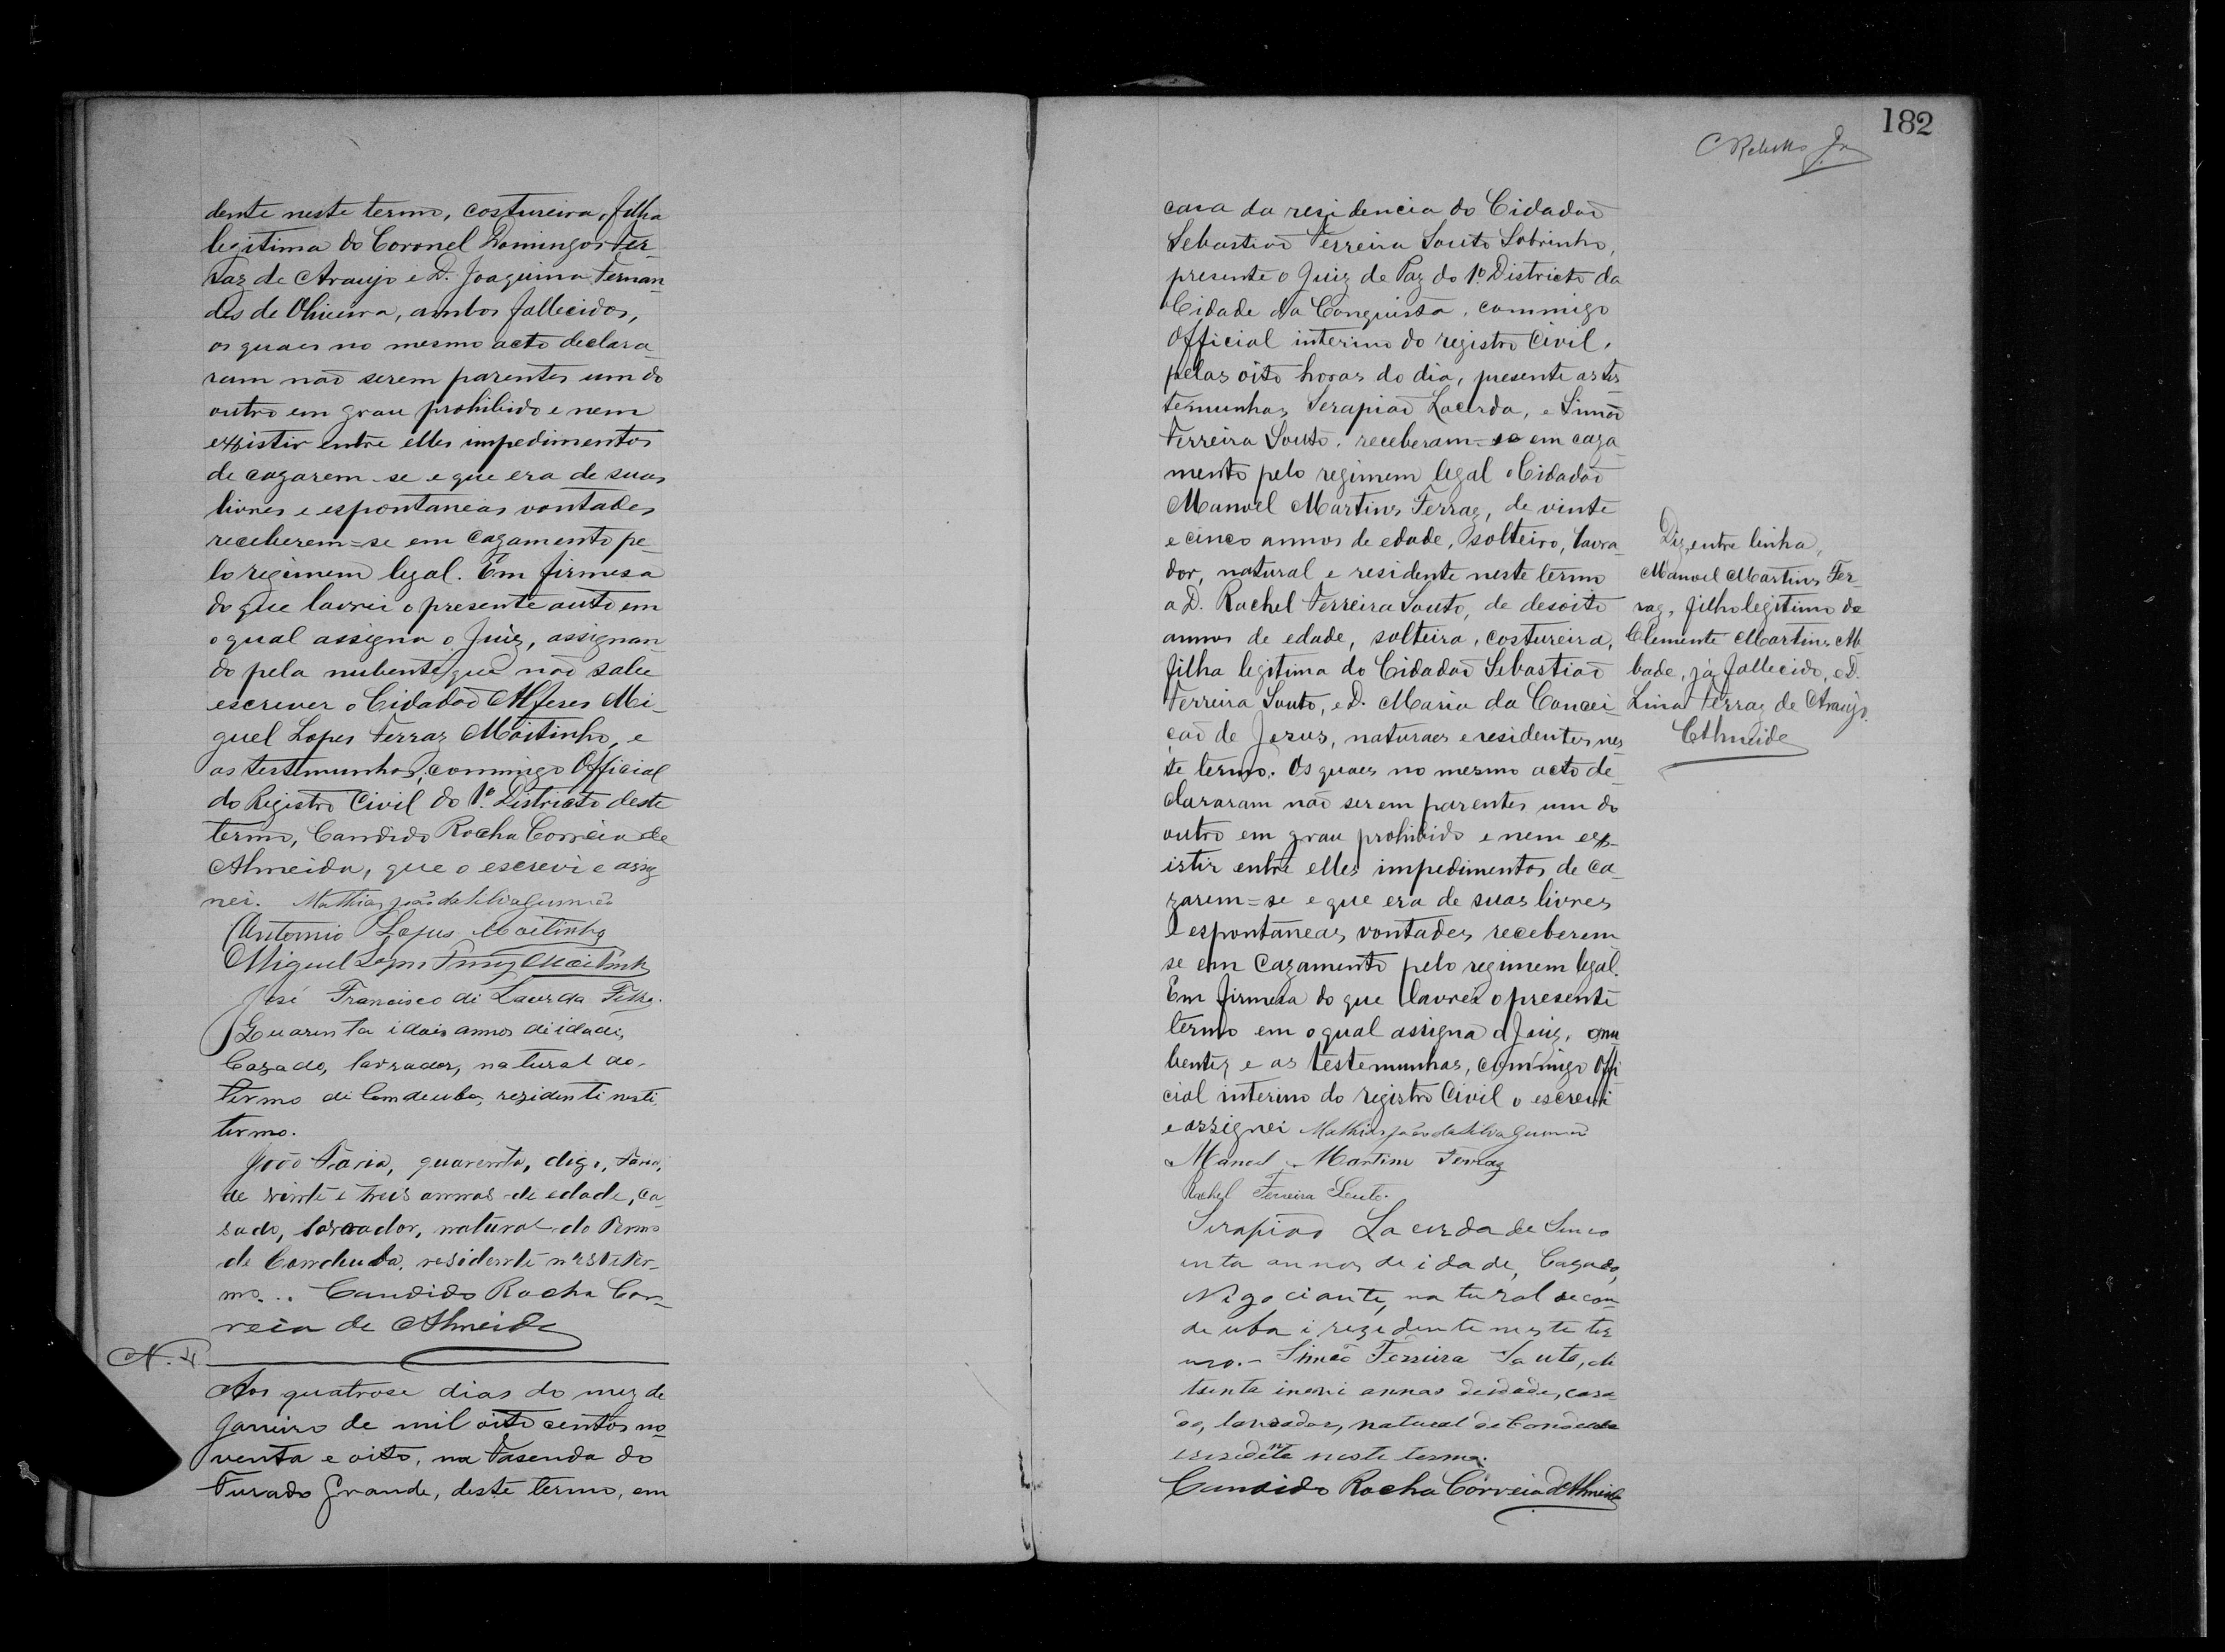 dente neste termo, costureira, filha
legitima do Coronel Domingos Fer-
raz de Araujo e D. Joaquina Fernan
des de Oliveira, ambos fallecidos,
os quaes no mesmo acto declara-
ram não serem parentes um do
outro em grau prohibido e nem
existir entre elles impedimentos
de cazarem-se e que era de suas
livres e espontaneas vontades
receberem=se em cazamento pe-
lo regimem legal. Em firmesa
do que lavrei o presente auto em
o qual assigna o Juiz, assignan-
do pela nubente que não sabe
escrever o Cidadão Alferes Mi-
guel Lopes Ferraz Moitinho, e
as testemunhas, commigo Official
do Registro Civil do 1º Districto deste
termo, Candido Rocha Correia de
Almeida, que o escrevi e assig
nei. Mathias João da Silva Gusmão
Antonio Lopes Moitinho
Miguel Lopes Ferraz Moitinho
José Francisco di Lacerda Filho.
Quarenta i dois annos di idade,
Cazado, lavrador, natural do
termo di Condeuba, rezidenti nesti
termo.
João Faria, quarenta, digo, Faria,
de vinte e treis annos de edade, ca-
sado, lavrador, natural do termo
de Condeuba, residente neste ter-
mo... Candido Rocha Cor-
reia de Almeida
N. 4
Aos quatrose dias do mez de
Janeiro de mil oito centos no-
venta e oito, na Fasenda do
Furado Grande, deste termo, em
182
casa da residencia do Cidadão
Sebastião Ferreira Souto Sobrinho,
presente o Juiz de Paz do 1º Districto da
Cidade da Conquista, commigo
Official interino do registro Civil,
pelas oito horas do dia, presente as tes
temunhas Serapião Lacerda, e Simão
Ferreira Souto, receberam=se em caza
mento pelo regimem legal o Cidadão
Manoel Martins Ferraz, de vinte
e cinco annos de edade, solteiro, lavra-
dor, natural e residente neste termo
a D. Rachel Ferreira Souto, de desoito
annos de edade, solteira, costureira,
filha legitima do Cidadão Sebastião
Ferreira Souto, e D. Maria da Concei-
ção de Jesus, naturaes e residentes nes
te termo. Os quaes no mesmo acto de-
clararam não serem parentes um do
outro em grau prohibido e nem ex-
istir entre elles impedimentos de ca-
zarem=se e que era de suas livres
e espontaneas vontades receberem
se em Cazamento pelo regimem legal.
Em firmesa do que lavrei o presente
termo em o qual assigna o Juiz, o nu
bentes e as testemunhas, commigo Offi
cial interino do registro Civil o escrevi
e assignei Mathias João da Silva Gusmão
Manoel Martins Ferraz
Rachel Ferreira Souto.
Serapião Lacerda de Sinco
enta annos de idade, Cazado,
Nigociante, natural de con
deuba i rezidente neste ter
mo.- Simão Ferreira Souto, de
annos deidade, casa
do, lavrador, natural de Condeuba
neste termo.
Candido Rocha Correia d'Almeida
Diz entre linha,
Manoel Martins Fer-
raz, filho legitimo de
Clemente Martins Ab
bade, já fallecido, e D.
Lina Ferraz de Araujo.
CAlmeida